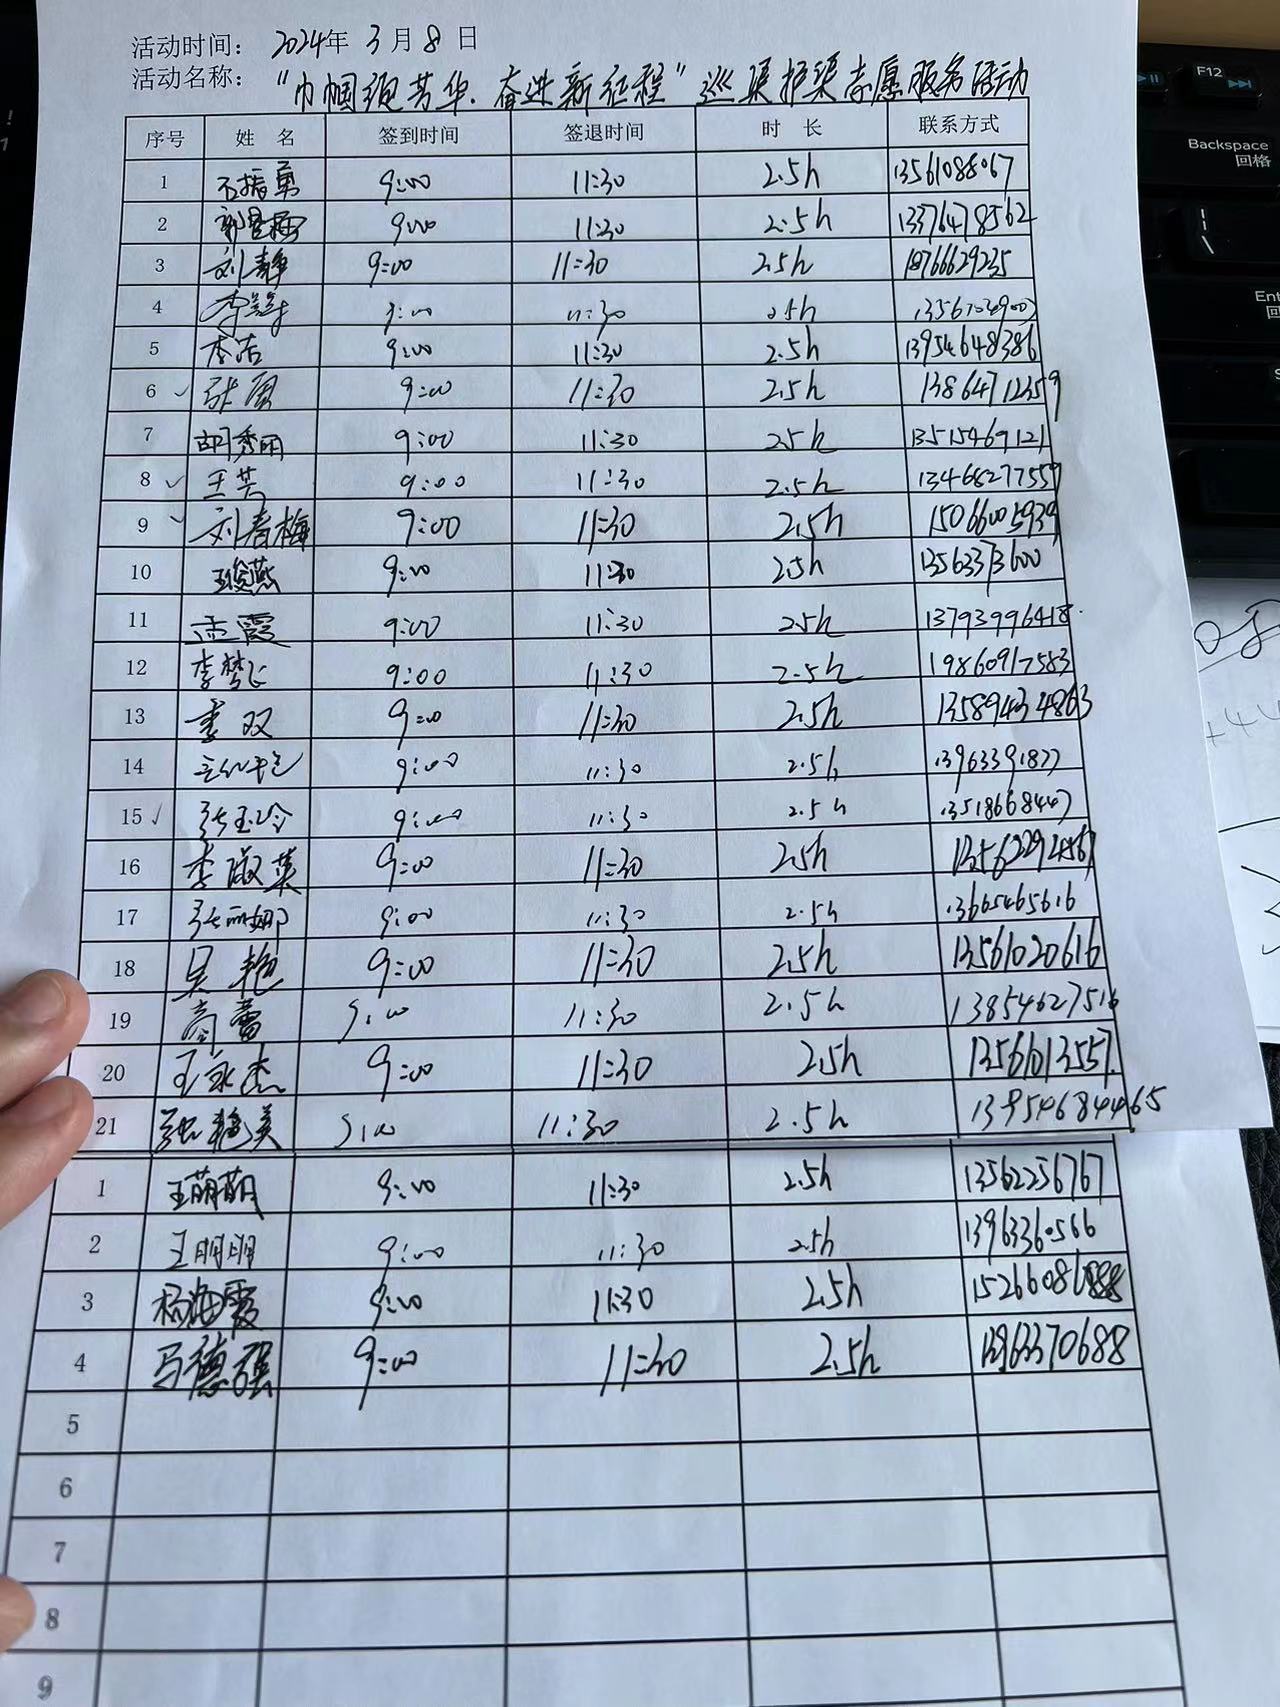 活动时间: 2024年 3 月 8 日
活动名称: "巾帼绽芳华.奋进新征程"巡渠护渠志愿服务活动
序号 姓 名 签到时间 签退时间 时 长 联系方式
1 石振勇 9:00 11:30 2.5h 13561088067
2 9:00 11:30 2.5h 13376478562
3 刘静 9:00 11:30 2.5h 18766629235
4 9:00 11:30 2.5h
5 李洁 9:00 11:30 2.5h 13954648386
6 张凤 9:00 11:30 2.5h 13864712359
7 胡秀丽 9:00 11:30 2.5h 13515469121
8 王芸 9:00 11:30 2.5h 13468277559
9 刘春梅 9:00 11:30 2.5h 15066005939
10 9:00 11:30 2.5h 13563373600
11 孟霞 9:00 11:30 2.5h 13793996418
12 李梦飞 9:00 11:30 2.5h 19860917583
13 李双 9:00 11:30 2.5h 13589434863
14 9:00 11:30 2.5h 13963391877
15 张玉冷 9:00 11:30 2.5h 13518668447
16 李淑英 9:00 11:30 2.5h
17 张丽娜 9:00 11:30 2.5h 13665465616
18 吴艳 9:00 11:30 2.5h 13561020616
19 高蕾 9:00 11:30 2.5h 13854627516
20 王永杰 9:00 11:30 2.5h 13561013557
21 张艳美 9:00 11:30 2.5h
1 王萌萌 9:00 11:30 2.5h 13562256767
2 王明明 9:00 11:30 2.5h 13963360566
3 杨海霞 9:00 11:30 2.5h
4 马德强 9:00 11:30 2.5h 13963370688
5
6
7
8
9
F12
Backspace
回格
\
Ent